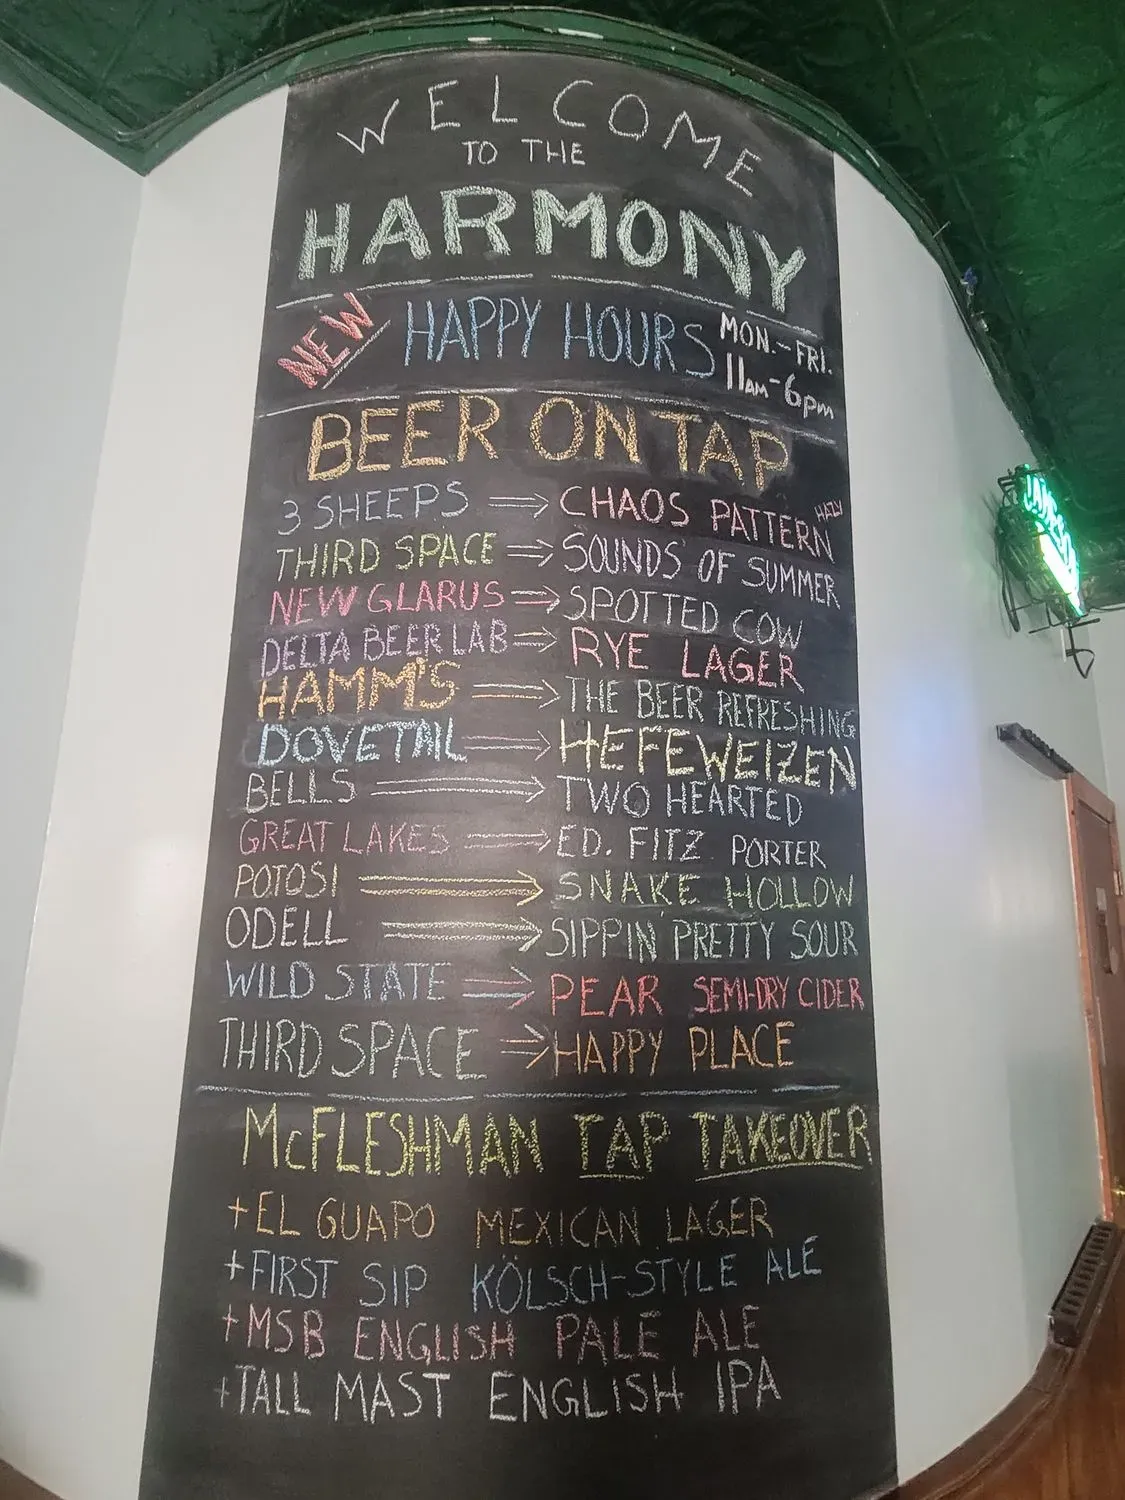 WELCOME
TO THE
HARMONY
NEW HAPPY HOURS MON.-FRI.
11AM-6pm
BEER ON TAP
3 SHEEPS ⇒ CHAOS PATTERN HAZY
THIRD SPACE ⇒ SOUNDS OF SUMMER
NEW GLARUS ⇒ SPOTTED COW
DELTA BEER LAB ⇒ RYE LAGER
HAMM'S ⇒ THE BEER REFRESHING
DOVETAIL ⇒ HEFEWEIZEN
BELLS ⇒ TWO HEARTED
GREAT LAKES ⇒ ED. FITZ PORTER
POTOSI ⇒ SNAKE HOLLOW
ODELL ⇒ SIPPIN' PRETTY SOUR
WILD STATE ⇒ PEAR SEMI-DRY CIDER
THIRD SPACE ⇒ HAPPY PLACE
McFLESHMAN TAP TAKEOVER
+EL GUAPO MEXICAN LAGER
+FIRST SIP KÖLSCH-STYLE ALE
+MSB ENGLISH PALE ALE
+TALL MAST ENGLISH IPA
JAMESON